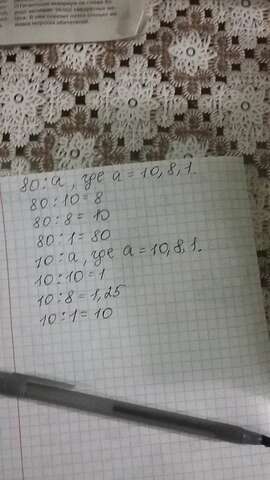 80:a, где a=10,8,1.
80:10=8
80:8=10
80:1=80
10:a, где a=10,8,1.
10:10=1
10:8=1,25
10:1=10